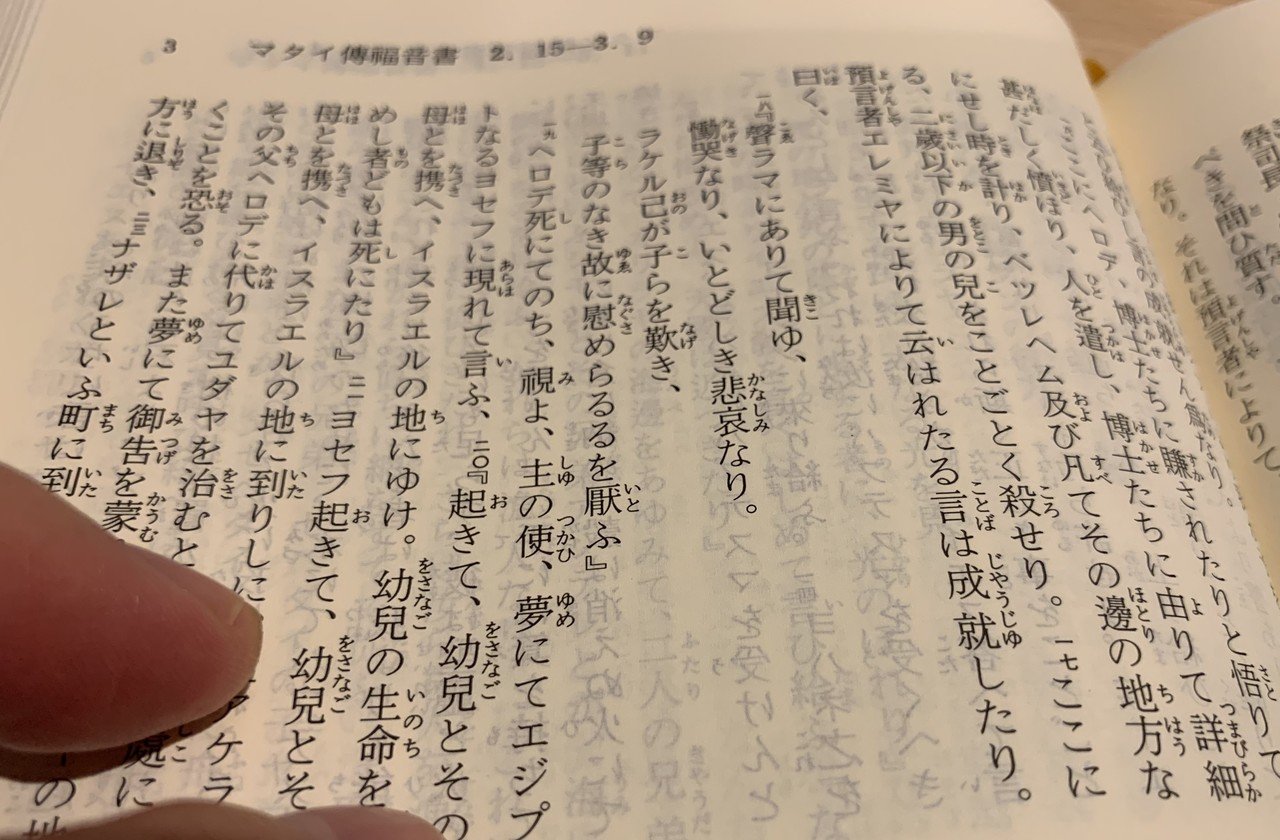 3 マタイ傳福音書 2. 15—3. 9
祭司長
べきを問ひ質す。
なり。それは預言者によりて
ん爲なり。
ここにヘロデ、博士たちに賺されたりと悟りて
甚だしく憤ほり、人を遣し、博士たちに由りて詳細
にせし時を計り、ベツレヘム及び凡てその邊の地方な
る、二歳以下の男の兒をことごとく殺せり。一七ここに
預言者エレミヤによりて云はれたる言は成就したり。
曰く、
一八『聲ラマにありて聞ゆ、
慟哭なり、いとどしき悲哀なり。
ラケル己が子らを歎き、
子等のなき故に慰めらるるを厭ふ』
一九ヘロデ死にてのち、視よ、主の使、夢にてエジプ
トなるヨセフに現れて言ふ、二〇『起きて、幼兒とその
母とを携へ、イスラエルの地にゆけ。幼兒の生命を
めし者どもは死にたり』二一ヨセフ起きて、幼兒とそ
母とを携へ、イスラエルの地に到りしに アケラ
その父ヘロデに代りてユダヤを治むと
くことを恐る。また夢にて御告を蒙 處に
方に退き、二三ナザレといふ町に到 の地